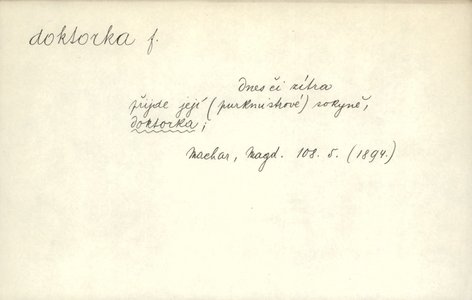 doktorka f.
Dnes či zítra
přijde její (purkmistrové) sokyně,
doktorka;
Machar, Magd. 108. 5. (1894.)